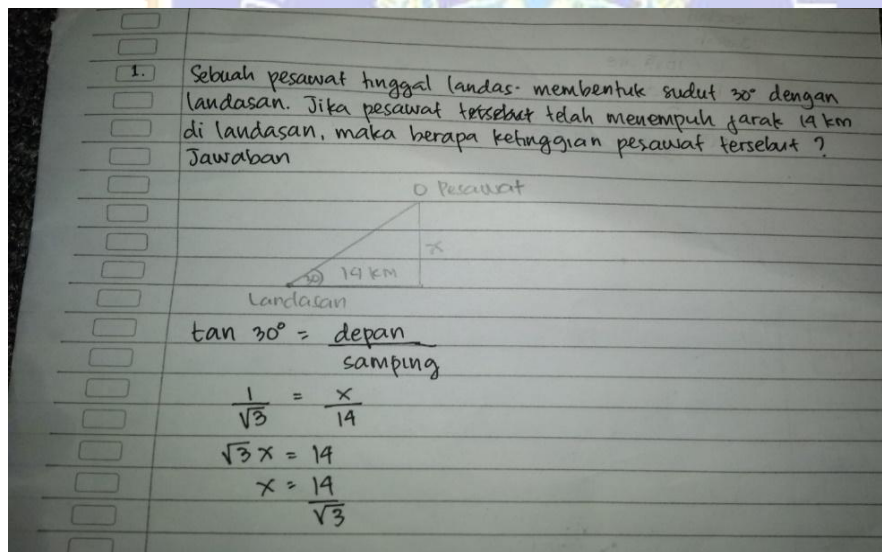 1. Sebuah pesawat tinggal landas. membentuk sudut 30° dengan
landasan. Jika pesawat tersebut telah menempuh jarak 14 km
di landasan, maka berapa ketinggian pesawat tersebut ?
Jawaban
Pesawat
x
30 14 KM
Landasan
tan 30° = depan
samping
1 = x
√3 14
√3 x = 14
x = 14
√3